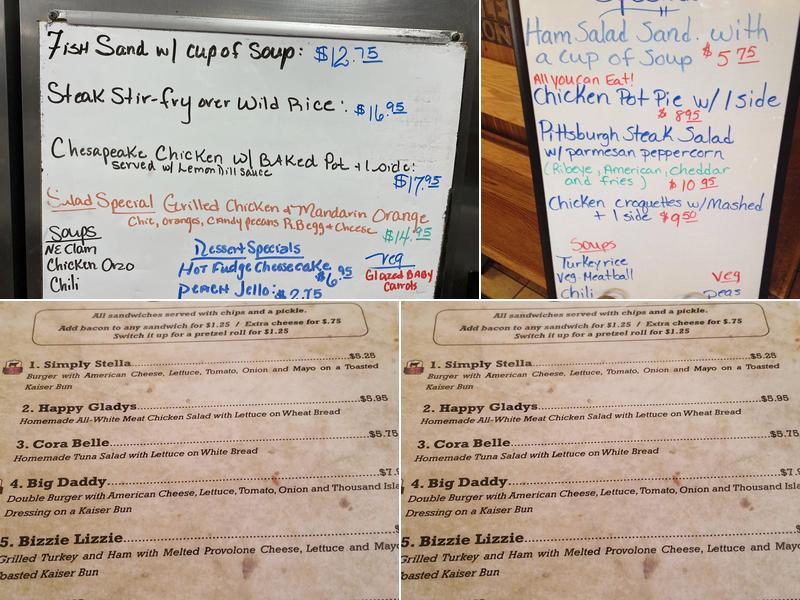 Fish Sand w/ cup of Soup: $12.75
Steak Stir-fry over Wild Rice: $16.95
Chesapeake Chicken w/ Baked Pot + 1 side:
served w/ Lemon Dill sauce
$17.95
Salad Special Grilled Chicken + Mandarin Orange
Chic, oranges, Candy pecans R.B egg + Cheese $14.95
Soups
NE Clam
Chicken Orzo
Chili
Dessert Specials
Hot Fudge Cheesecake $6.95
Peach Jello: $2.75
Veg
Glazed Baby
Carrots
Ham Salad Sand. with
a cup of Soup $5.75
All you can Eat!
Chicken Pot Pie w/ 1 side
$8.95
Pittsburgh Steak Salad
w/ parmesan peppercorn
(Ribeye, American, cheddar
and fries) $10.95
Chicken croquettes w/ Mashed
+ 1 side $9.50
Soups
Turkey rice
Veg Meatball
Chili
Veg
peas
All sandwiches served with chips and a pickle.
Add bacon to any sandwich for $1.25 / Extra cheese for $.75
Switch it up for a pretzel roll for $1.25
1. Simply Stella...$5.25
Burger with American Cheese, Lettuce, Tomato, Onion and Mayo on a Toasted
Kaiser Bun
2. Happy Gladys...$5.95
Homemade All-White Meat Chicken Salad with Lettuce on Wheat Bread
3. Cora Belle...$5.75
Homemade Tuna Salad with Lettuce on White Bread
4. Big Daddy...$7.
Double Burger with American Cheese, Lettuce, Tomato, Onion and Thousand Isla
Dressing on a Kaiser Bun
5. Bizzie Lizzie...
Grilled Turkey and Ham with Melted Provolone Cheese, Lettuce and Mayo
oasted Kaiser Bun
All sandwiches served with chips and a pickle.
Add bacon to any sandwich for $1.25 / Extra cheese for $.75
Switch it up for a pretzel roll for $1.25
1. Simply Stella...$5.25
Burger with American Cheese, Lettuce, Tomato, Onion and Mayo on a Toasted
Kaiser Bun
2. Happy Gladys...$5.95
Homemade All-White Meat Chicken Salad with Lettuce on Wheat Bread
3. Cora Belle...$5.75
Homemade Tuna Salad with Lettuce on White Bread
4. Big Daddy...$7.
Double Burger with American Cheese, Lettuce, Tomato, Onion and Thousand Isla
Dressing on a Kaiser Bun
5. Bizzie Lizzie...
Grilled Turkey and Ham with Melted Provolone Cheese, Lettuce and Mayo
oasted Kaiser Bun